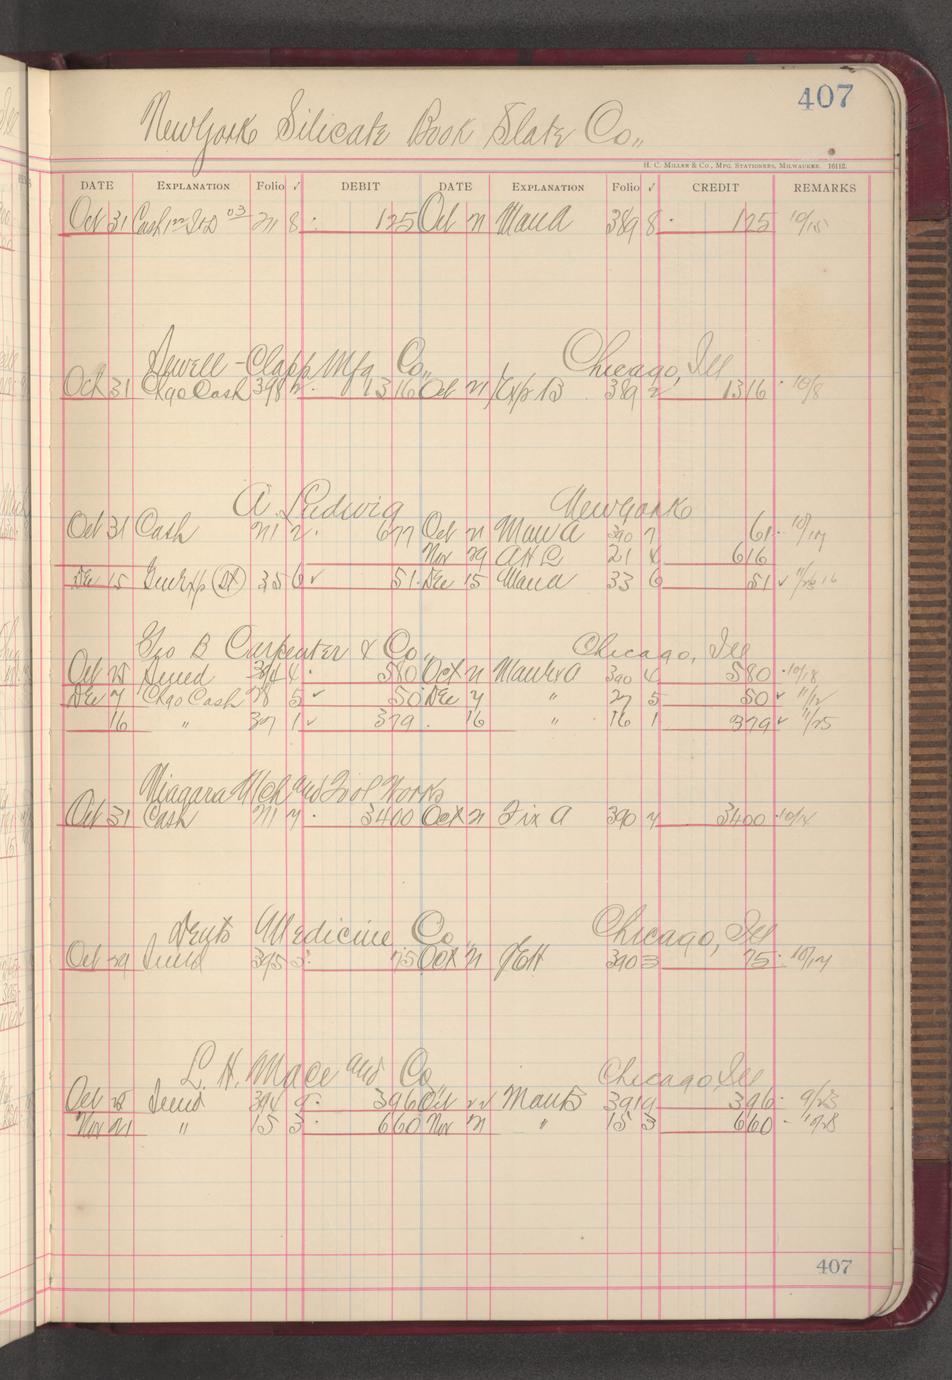 407
New York Silicate Book Slate Co.,
H. C. Miller & Co., Mfg. Stationers, Milwaukee. 16112.
DATE EXPLANATION Folio ✓ DEBIT DATE EXPLANATION Folio ✓ CREDIT REMARKS
Oct 31 Cash 03 211 8 125 Oct 21 Man A 389 8 125 10/15
Sewell-Clapp Mfg Co., Chicago, Ill
Oct 31 Chgo Cash 398 2 1316 Oct 21 Exp B 389 2 1316 10/8
A. Ludwig New York
Oct 31 Cash 211 2 677 Oct 21 Man A 390 7 61 10/17
Nov 29 A H L 21 4 616
Dec 15 Gen Exp (DX) 35 6 ✓ 51 Dec 15 Man A 33 6 51 ✓
Geo B Carpenter & Co., Chicago, Ill
Oct 28 Sund 394 4 580 Oct 21 Manfr A 390 4 580 10/18
Dec 7 Chgo Cash 28 5 ✓ 50 Dec 7 " 27 5 50 ✓ 11/12
16 " 37 1 ✓ 379 16 " 16 1 379 ✓ 11/25
Niagara Mch and Tool Works
Oct 31 Cash 211 7 3400 Oct 21 Fix A 390 7 3400
Dents Medicine Co Chicago, Ill
Oct 29 Sund 395 3 75 Oct 21 390 3 75 10/17
L. H. Mace and Co Chicago Ill
Oct 28 Sund 394 9 396 Oct 22 Man B 391 9 396 9/23
Nov 21 " 15 3 660 Nov 21 " 15 3 660 10/28
407